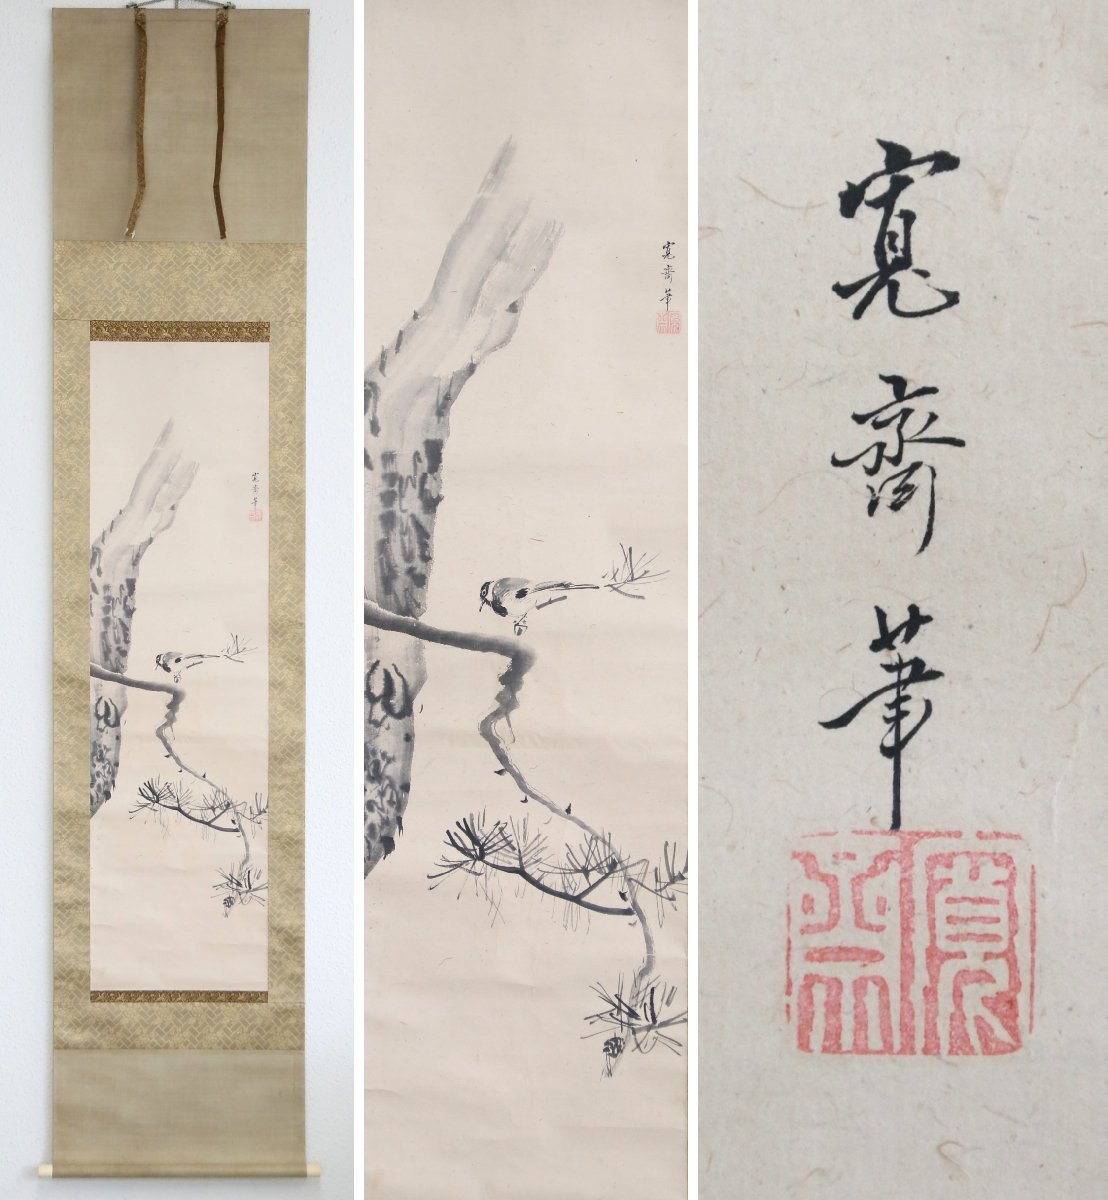 寛齋筆
寛齋筆
寛齋筆
寛齋